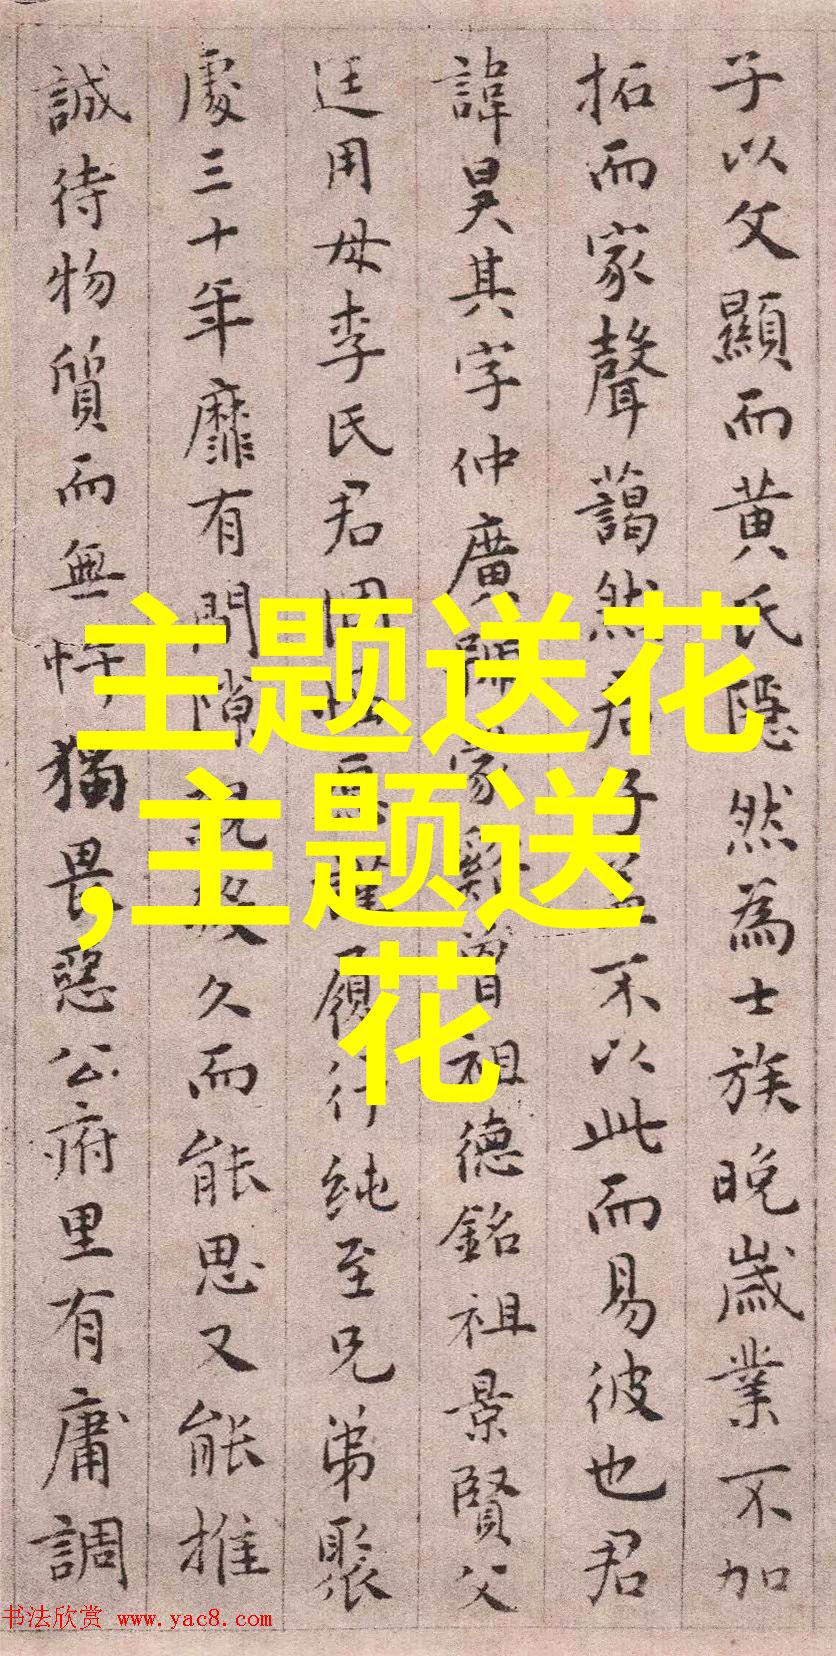 子以父顯而黄氏隱然為士族晚嵗業不加
拓而家聲藹然君子蓋不以此而易彼也君
諱昊其字仲廣號家谿曾祖德銘祖景賢父
廷用母李氏君履行純至兄弟聚
處三十年靡有間隙親終久而能思又能推
誠待物質而無忤猶畏惡公府里有庸調
主题送花
,主题送
花
书法欣赏 www.yac8.com